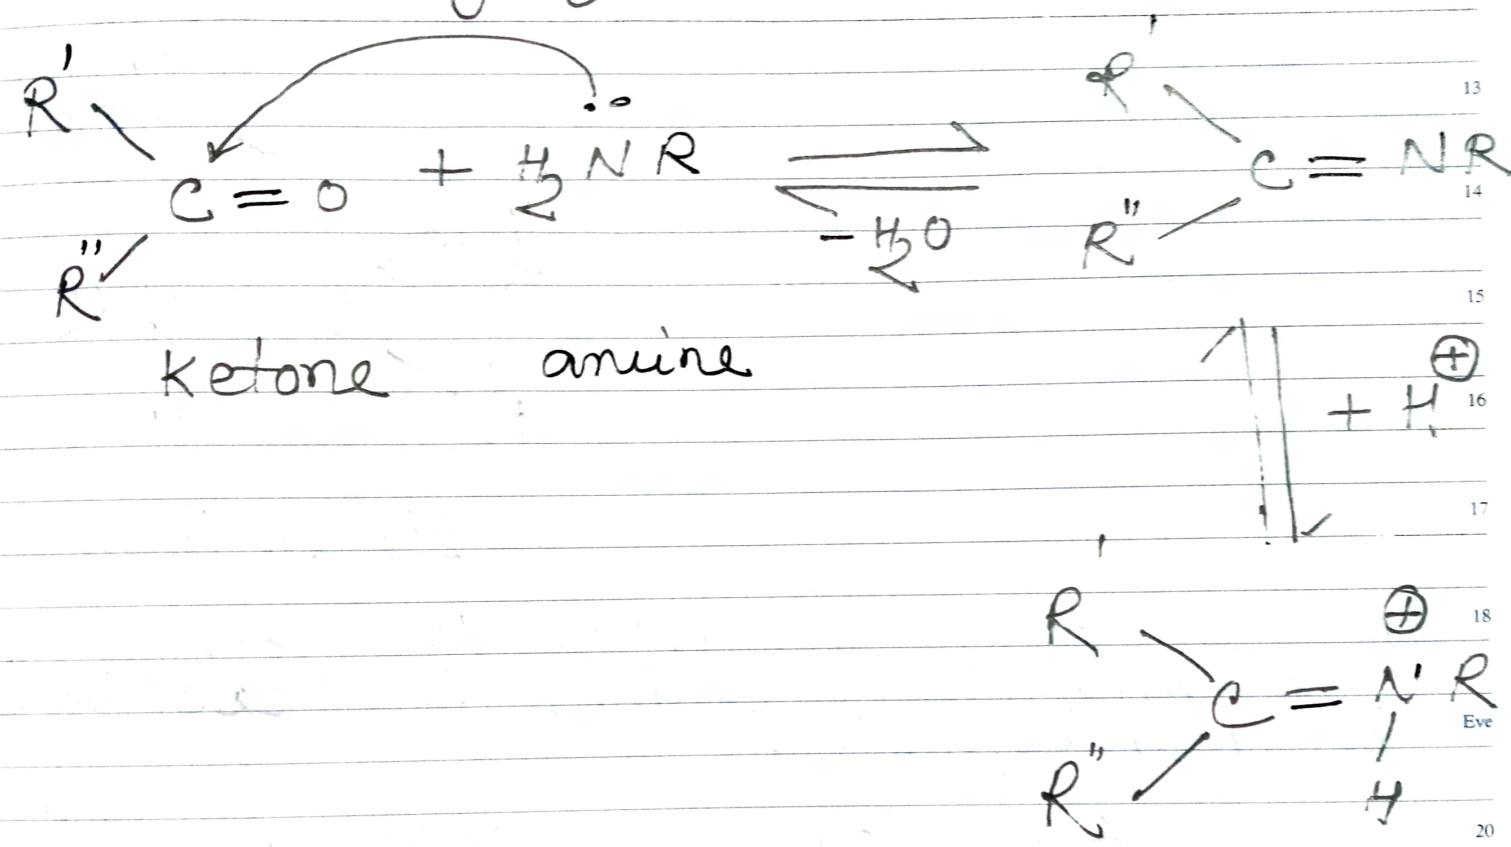 R' R'
C = O + H2N̈R ⇌ C = NR
R" - H2O R"
ketone amine
+ H⊕
R' ⊕
C = N R
R" H
13
14
15
16
17
18
Eve
20